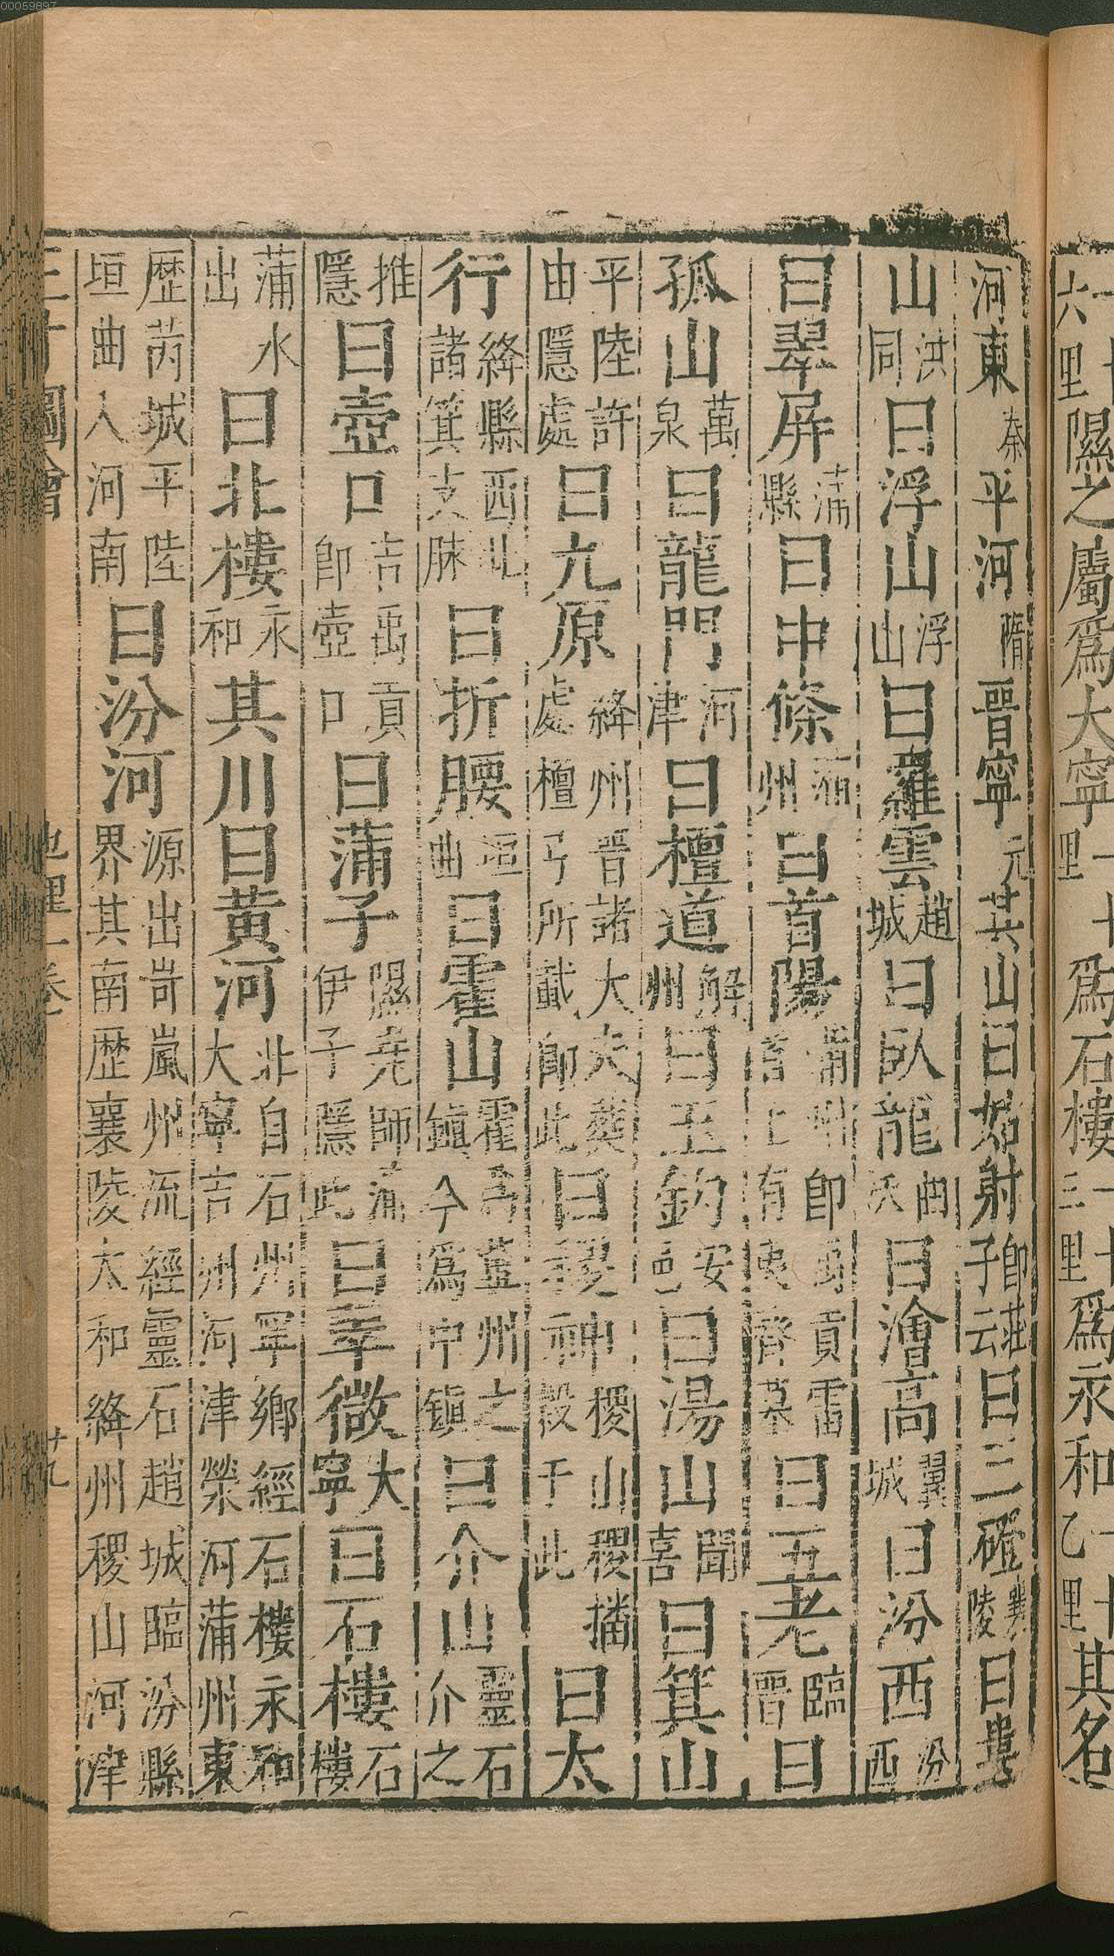 六里隰之屬爲大寧一十里爲石樓一十三里爲永和一十乙里其名
河東秦平河隋晉寧元其山曰姑射即莊子云曰三磴襄陵曰婁
山洪同曰浮山浮山曰羅雲趙城曰臥龍曲沃曰澮高翼城曰汾西汾西
曰翠屏蒲縣曰中條蒲州曰首陽蒲州即禹貢雷首上有夷齊墓曰五老臨晉曰
孤山萬泉曰龍門河津曰檀道解州曰玉鈎安邑曰湯山聞喜曰箕山
平陸許由隱處曰九原絳州晉諸大夫葬處檀弓所載即此曰稷神稷山稷播穀于此曰太
行絳縣西北諸箕支脉曰折腰垣曲曰霍山霍爲冀州之鎮今爲中鎮曰介山靈石介之
推隱曰壺口吉禹貢即壺口曰蒲子隰堯師蒲伊子隱此曰孝微大寧曰石樓石樓
蒲水出曰北樓永和其川曰黃河北自石州寧鄉經石樓永和大寧吉州河津榮河蒲州東
歷芮城平陸垣曲入河南曰汾河源出岢嵐州流經靈石趙城臨汾縣界其南歷襄陵太和絳州稷山河津
三才圖會 地理一卷 廿九